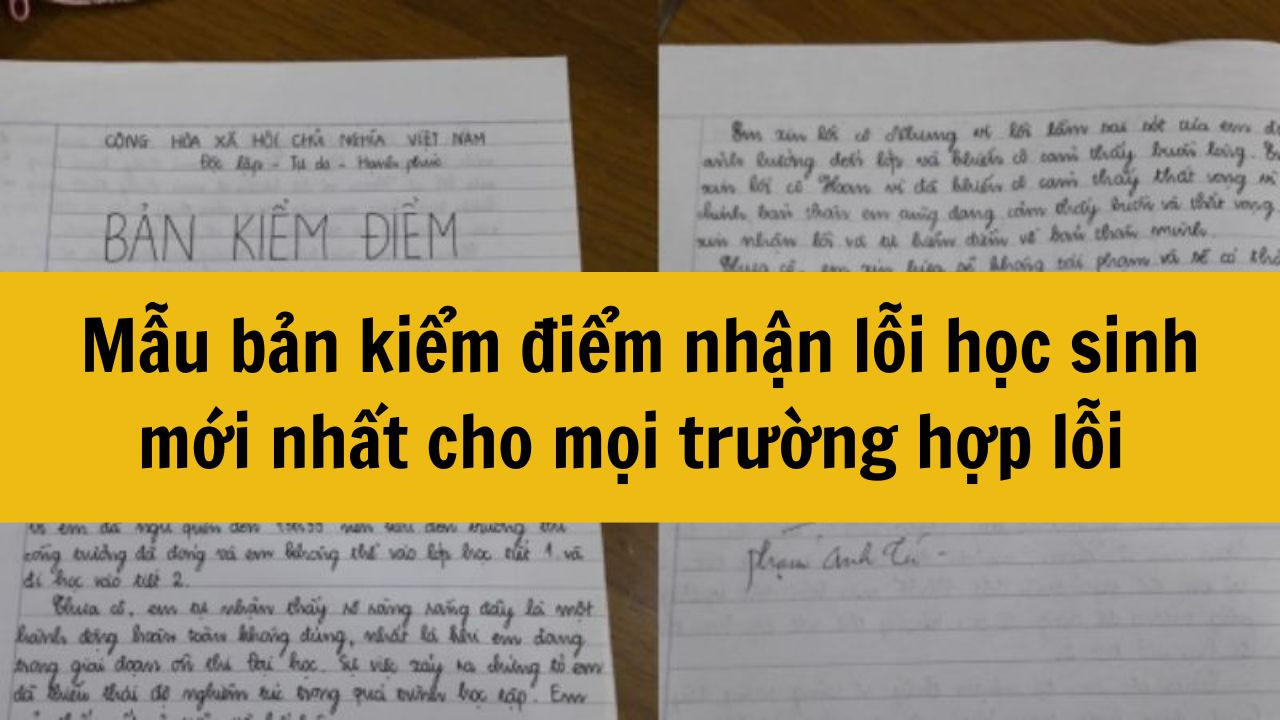 CÔNG HÒA XÃ HỘI CHỦ NGHĨA VIỆT NAM
Độc lập - Tự do - Hạnh phúc
BẢN KIỂM ĐIỂM
Em xin lỗi cô Nhung vì lỗi lầm sai sót của em đ
ảnh hưởng đến lớp và khiến cô cảm thấy buồn lòng. E
xin lỗi cô Hoan vì đã khiến cô cảm thấy thất vọng vì
chính bản thân em cũng đang cảm thấy buồn và thất vọng
xin nhận lỗi và tự kiểm điểm về bản thân mình.
Thưa cô, em xin hứa sẽ không tái phạm và sẽ có th
Mẫu bản kiểm điểm nhận lỗi học sinh
mới nhất cho mọi trường hợp lỗi
em đã ngủ quên đến nên sau đến trường thì
cổng trường đã đóng và em không thể vào lớp học tiết 1 và
đi học vào tiết 2.
Thưa cô, em tự nhận thấy rõ ràng rằng đây là một
hành động hoàn toàn không đúng, nhất là khi em đang
trong giai đoạn ôn thi đại học. Sự việc xảy ra chứng tỏ em
đã thiếu thái độ nghiêm túc trong quá trình học tập. Em
Phạm Anh Tú